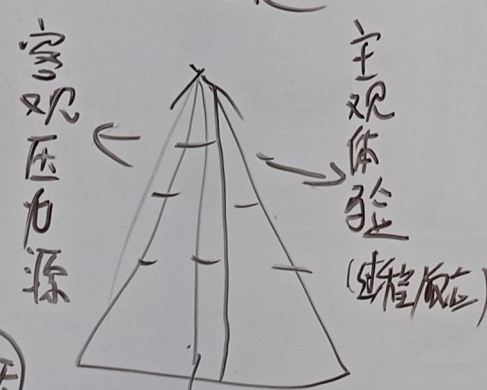 客观压力源
主观体验
(过程/反应)